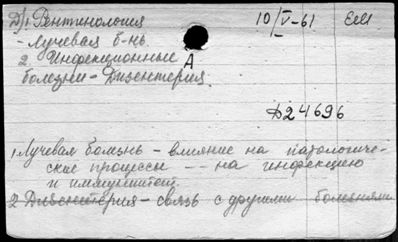 Д). Рентинология 10/V-61 ЕМ
- Лучевая б-нь.
2. Инфекционные А
болезни - Дизентерия.
Д24696
1. Лучевая болезнь - влияние на патологиче-
ские процессы -- на инфекцию
и иммунитет.
2 Дизентерия - связь с другими болезнями